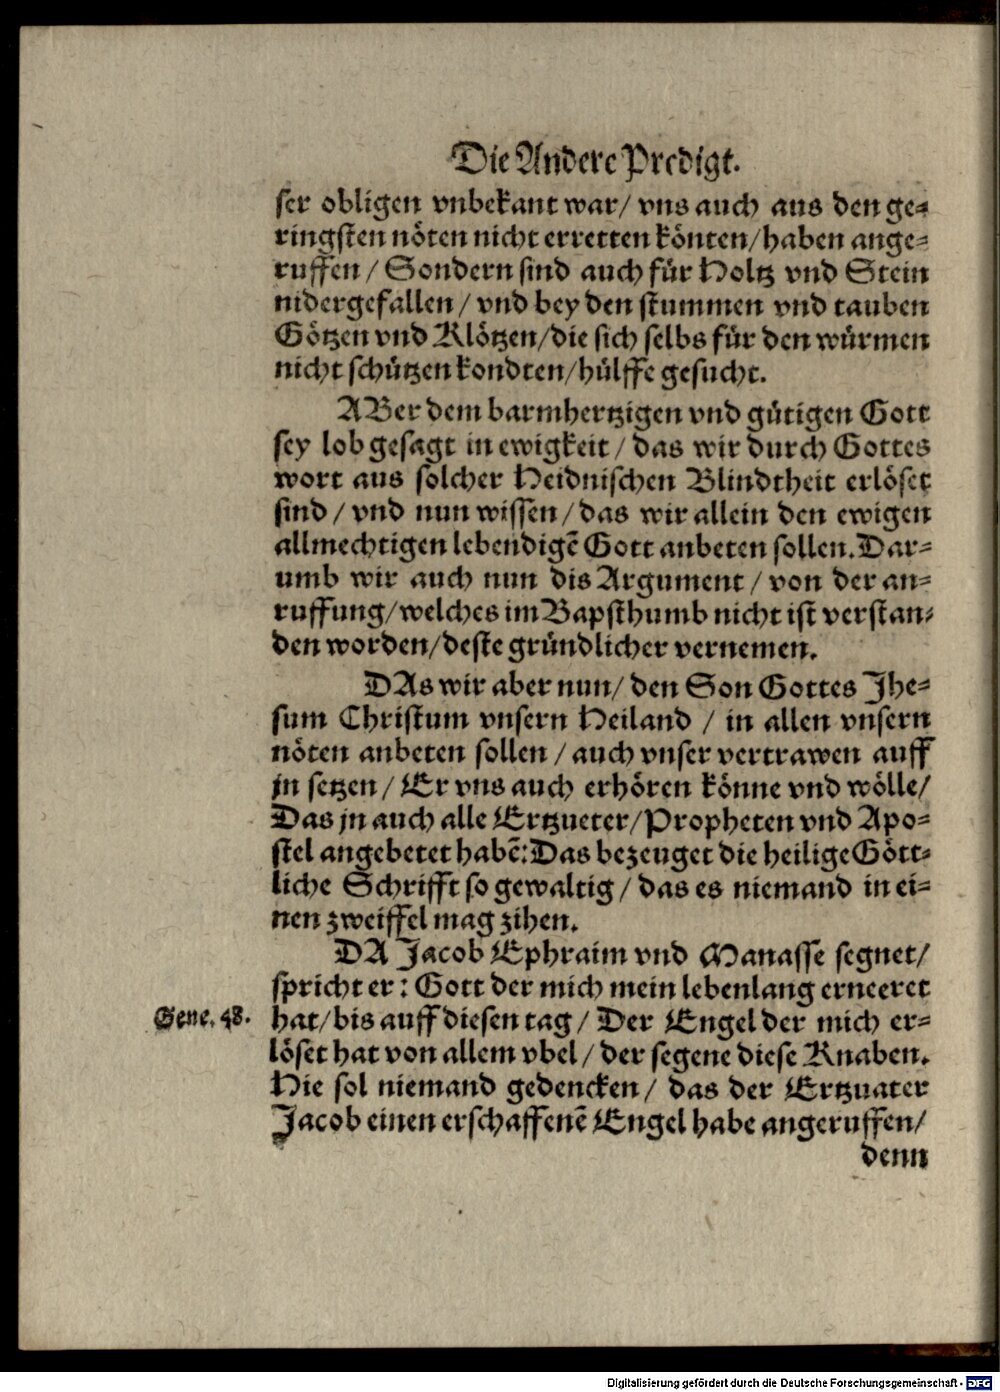 Die Andere Predigt.
ser obligen vnbekant war/ vns auch aus den ge-
ringsten nöten nicht erretten könten/ haben ange-
ruffen / Sondern sind auch für Holtz vnd Stein
nidergefallen / vnd bey den stummen vnd tauben
Götzen vnd Klötzen/die sich selbs für den würmen
nicht schützen kondten/hülffe gesucht.
ABer dem barmhertzigen vnd gütigen Gott
sey lob gesagt in ewigkeit / das wir durch Gottes
wort aus solcher Heidnischen Blindtheit erlöset
sind / vnd nun wissen / das wir allein den ewigen
allmechtigen lebendigē Gott anbeten sollen. Dar-
umb wir auch nun dis Argument / von der an-
ruffung/welches im Bapsthumb nicht ist verstan-
den worden/deste gründlicher vernemen.
DAs wir aber nun/ den Son Gottes Jhe-
sum Christum vnsern Heiland / in allen vnsern
nöten anbeten sollen / auch vnser vertrawen auff
jn setzen / Er vns auch erhören könne vnd wölle/
Das jn auch alle Ertzueter/Propheten vnd Apo-
stel angebetet habē: Das bezeuget die heilige Gött-
liche Schrifft so gewaltig / das es niemand in ei-
nen zweiffel mag zihen.
DA Jacob Ephraim vnd Manasse segnet/
spricht er: Gott der mich mein lebenlang erneeret
Gene. 48. hat/bis auff diesen tag / Der Engel der mich er-
löset hat von allem vbel / der segene diese Knaben.
Hie sol niemand gedencken / das der Ertzuater
Jacob einen erschaffenē Engel habe angeruffen/
denn
Digitalisierung gefördert durch die Deutsche Forschungsgemeinschaft - DFG